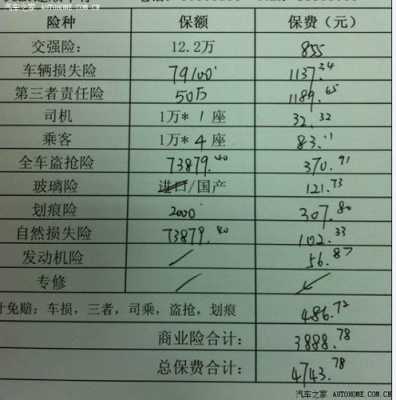 汽车之家 AUTOHOME.COM.CN
险种 保额 保费（元）
交强险： 12.2万 855
车辆损失险 79100 1137.34
第三者责任险 50万 1189.65
司机 1万* 1 座 32.32
乘客 1万* 4 座 83.11
全车盗抢险 73879.40 370.91
玻璃险 进口/国产 121.73
划痕险 2000 307.80
自然损失险 73879.40 102.33
发动机险 / 56.87
专修 / /
计免赔：车损，三者，司乘，盗抢，划痕 486.72
商业险合计： 3888.78
总保费合计： 4743.78
汽车之家 AUTOHOME.COM.CN